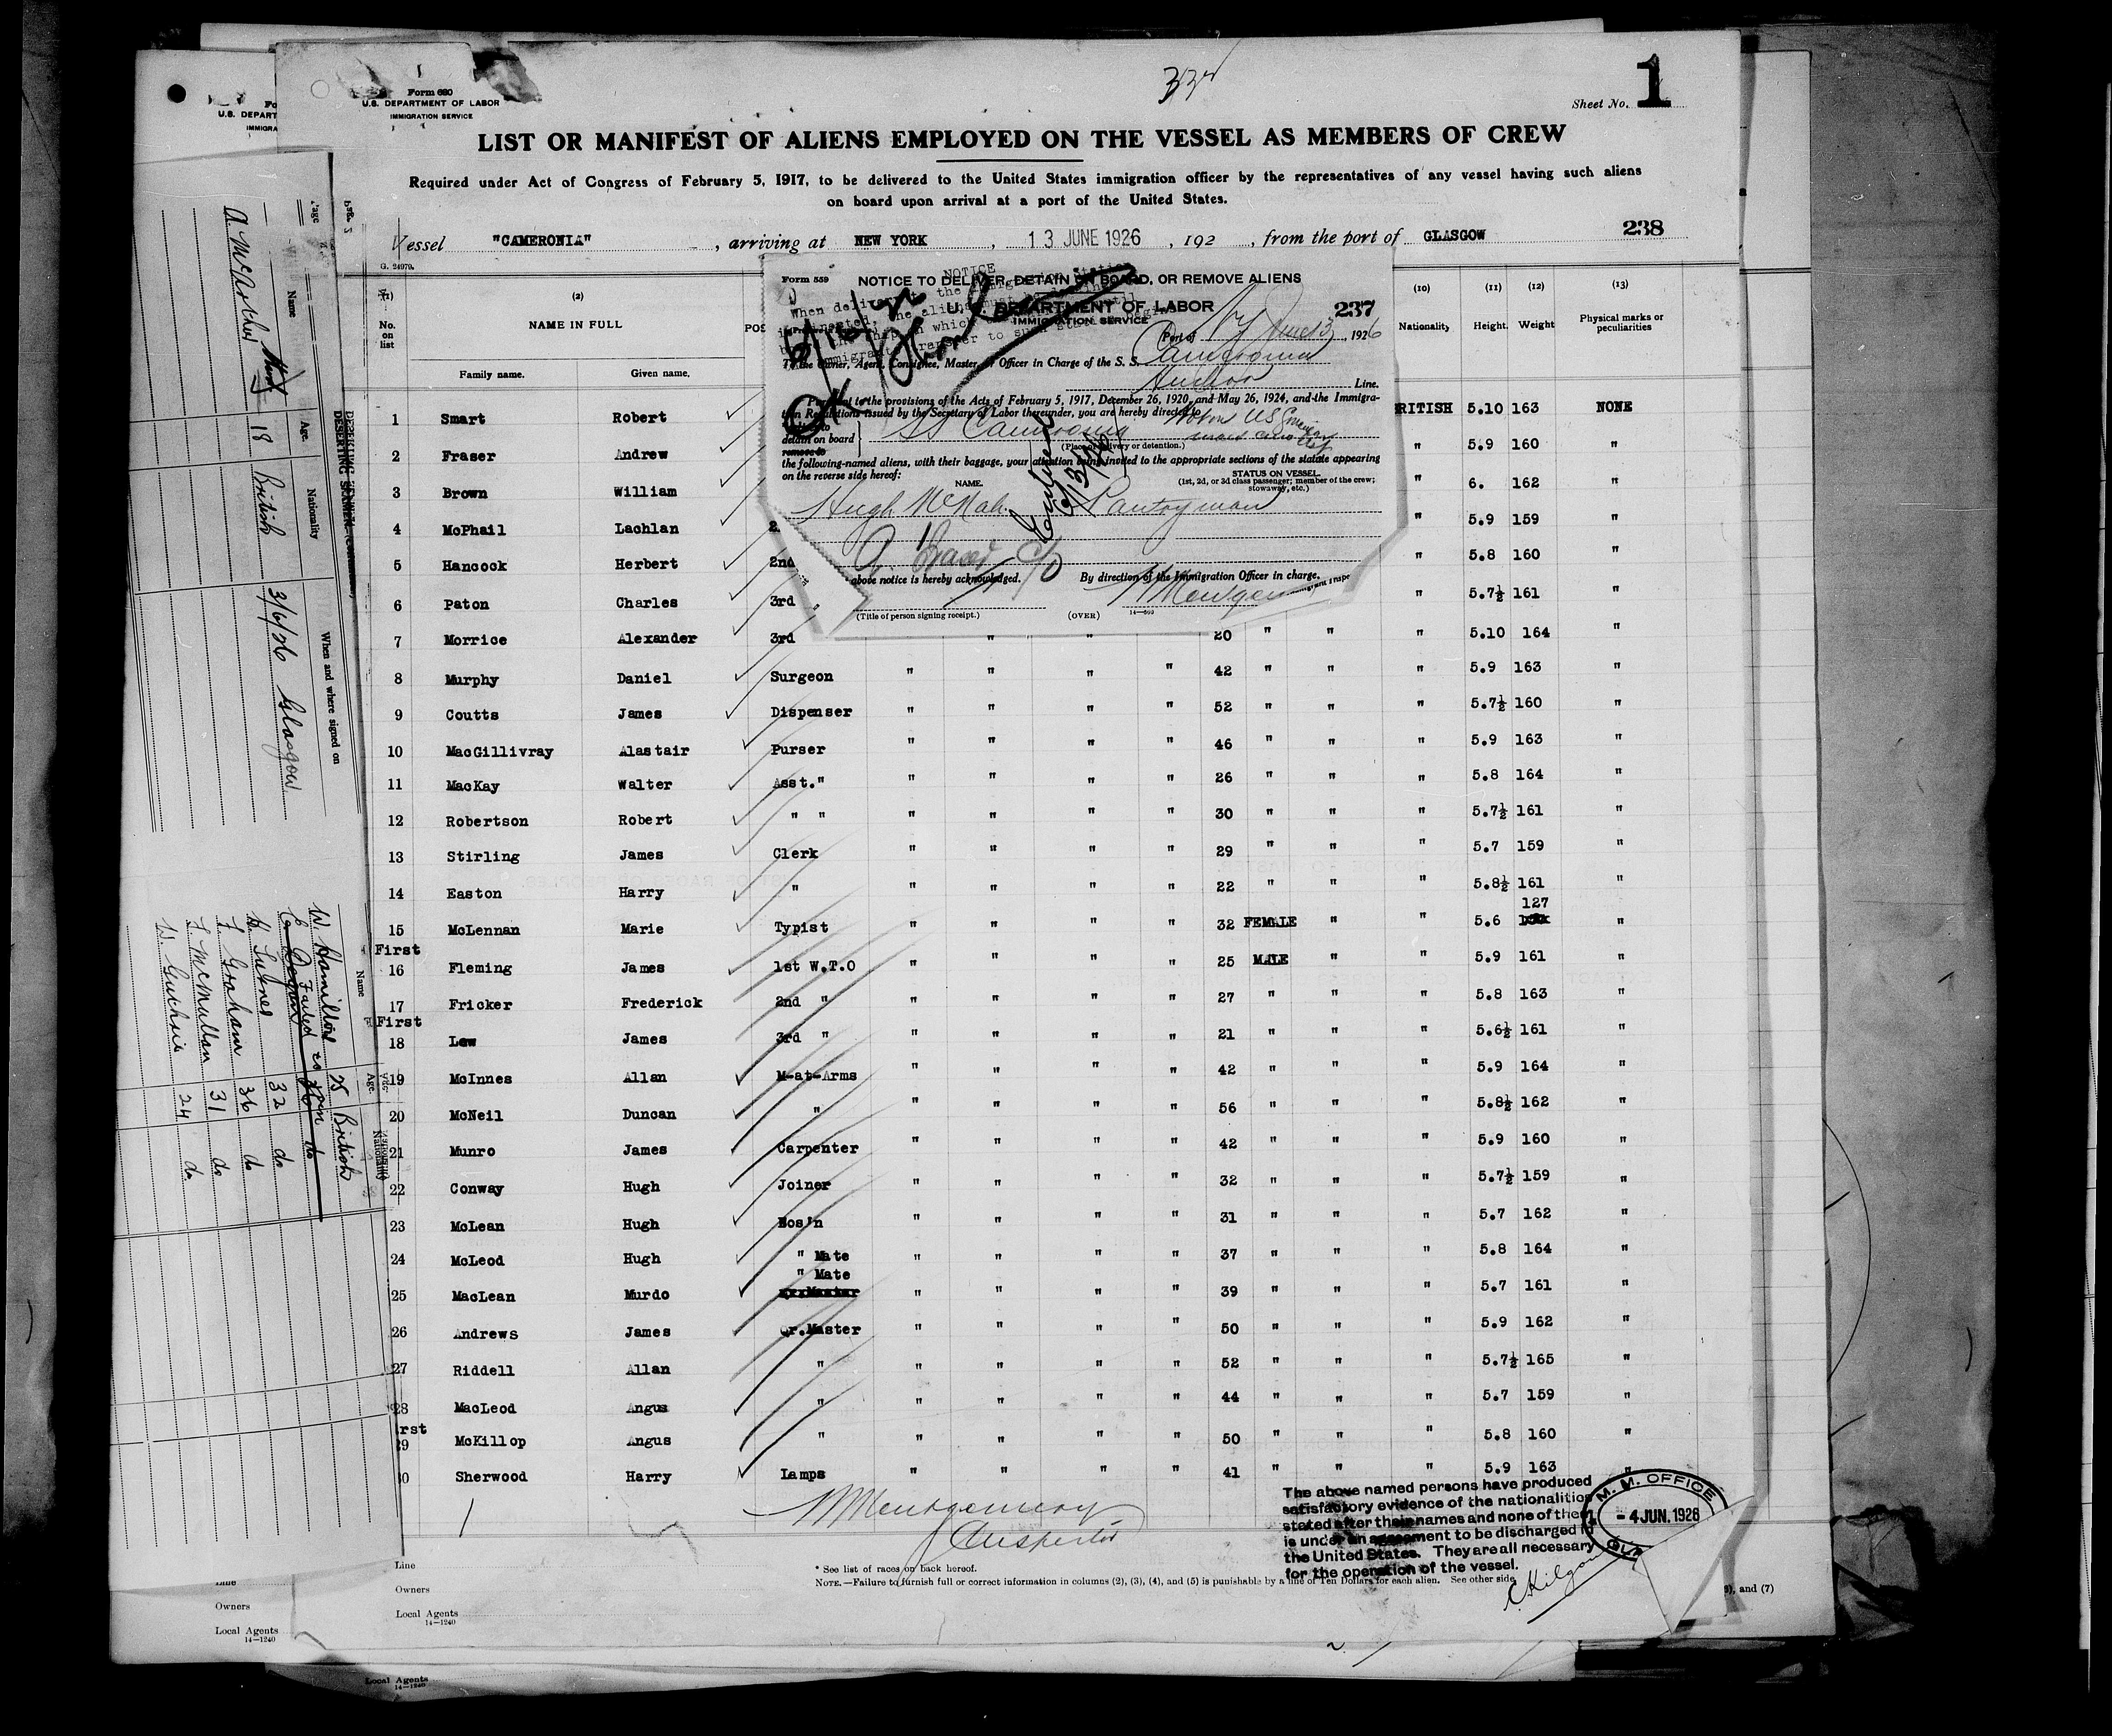 Form 680
U.S. DEPARTMENT OF LABOR
IMMIGRATION SERVICE
Sheet No. 1
LIST OR MANIFEST OF ALIENS EMPLOYED ON THE VESSEL AS MEMBERS OF CREW
Required under Act of Congress of February 5, 1917, to be delivered to the United States immigration officer by the representatives of any vessel having such aliens
on board upon arrival at a port of the United States.
238
Vessel "CAMERONIA", arriving at NEW YORK, 13 JUNE 1926, 192, from the port of GLASGOW
G. 24979.
Form 559
NOTICE TO DELIVER, DETAIN ON BOARD, OR REMOVE ALIENS
U. S. DEPARTMENT OF LABOR
237
IMMIGRATION SERVICE
Port of NY June 13, 1926
To the Owner, Agent, Consignee, Master or Officer in Charge of the S. S. Cameronia
Anchor Line.
Pursuant to the provisions of the Acts of February 5, 1917, December 26, 1920, and May 26, 1924, and the Immigra-
tion Regulations issued by the Secretary of Labor thereunder, you are hereby directed to
detain on board SS Cameronia
remove to
(Place of delivery or detention.)
the following-named aliens, with their baggage, your attention being invited to the appropriate sections of the statute appearing
on the reverse side hereof:
NAME.
STATUS ON VESSEL
(1st, 2d, or 3d class passenger; member of the crew; stowaway, etc.)
Hugh McNab Pantryman
above notice is hereby acknowledged.
By direction of the Immigration Officer in charge,
(Title of person signing receipt.)
(OVER)
(1) No. on list
(2) NAME IN FULL
Family name. Given name.
(10) Nationality
(11) Height.
(12) Weight
(13) Physical marks or peculiarities
1 Smart Robert RITISH 5.10 163 NONE
2 Fraser Andrew " 5.9 160 "
3 Brown William " 6. 162 "
4 McPhail Lachlan 2 " 5.9 159 "
5 Hancock Herbert 2nd " 5.8 160 "
6 Paton Charles 3rd " " 5.7½ 161 "
7 Morrice Alexander 3rd " " 20 " " " 5.10 164 "
8 Murphy Daniel Surgeon " " " " 42 " " " 5.9 163 "
9 Coutts James Dispenser " " " " 52 " " " 5.7½ 160 "
10 MacGillivray Alastair Purser " " " " 46 " " " 5.9 163 "
11 MacKay Walter Asst." " " " " 26 " " " 5.8 164 "
12 Robertson Robert " " " " " " 30 " " " 5.7½ 161 "
13 Stirling James Clerk " " " " 29 " " " 5.7 159 "
14 Easton Harry " " " " " 22 " " " 5.8½ 161 "
127
15 McLennan Marie Typist " " " " 32 FEMALE " " 5.6 "
First
16 Fleming James 1st W.T.O " " " " 25 MALE " " 5.9 161 "
17 Fricker Frederick 2nd " " " " " 27 " " " 5.8 163 "
First
18 Law James 3rd " " " " " 21 " " " 5.6½ 161 "
19 McInnes Allan M-at-Arms " " " " 42 " " " 5.9 164 "
20 McNeil Duncan " " " " " 56 " " " 5.8½ 162 "
21 Munro James Carpenter " " " " 42 " " " 5.9 160 "
22 Conway Hugh Joiner " " " " 32 " " " 5.7½ 159 "
23 McLean Hugh Bos'n " " " " 31 " " " 5.7 162 "
24 McLeod Hugh " Mate " " " " 37 " " " 5.8 164 "
" Mate
25 MacLean Murdo " " " " 39 " " " 5.7 161 "
26 Andrews James Qr.Master " " " " 50 " " " 5.9 162 "
27 Riddell Allan " " " " " 52 " " " 5.7½ 165 "
28 MacLeod Angus " " " " " 44 " " " 5.7 159 "
rst
29 McKillop Angus " " " " " 50 " " " 5.8 160 "
30 Sherwood Harry Lamps " " " " 41 " " " 5.9 163 "
The above named persons have produced
satisfactory evidence of the nationalities
stated after their names and none of them
is under an agreement to be discharged in
the United States. They are all necessary
for the operation of the vessel.
M. M. OFFICE
- 4 JUN. 1926
Montgomery
Inspector
* See list of races on back hereof.
NOTE.—Failure to furnish full or correct information in columns (2), (3), (4), and (5) is punishable by a fine of Ten Dollars for each alien. See other side
), and (7)
Line
Owners
Local Agents
14—1240
Line
Owners
Local Agents
14—1240
Local Agents
14—1240
Page
Name Age. Nationality When and where signed on
18 British 3/6/26 Glasgow
DESERTING SEAMEN
Name Age Nationality
W. Hamilton 25 British
Failed to join
32 do
F. Graham 36 do
F. McMullan 31 do
W. Guthrie 24 do